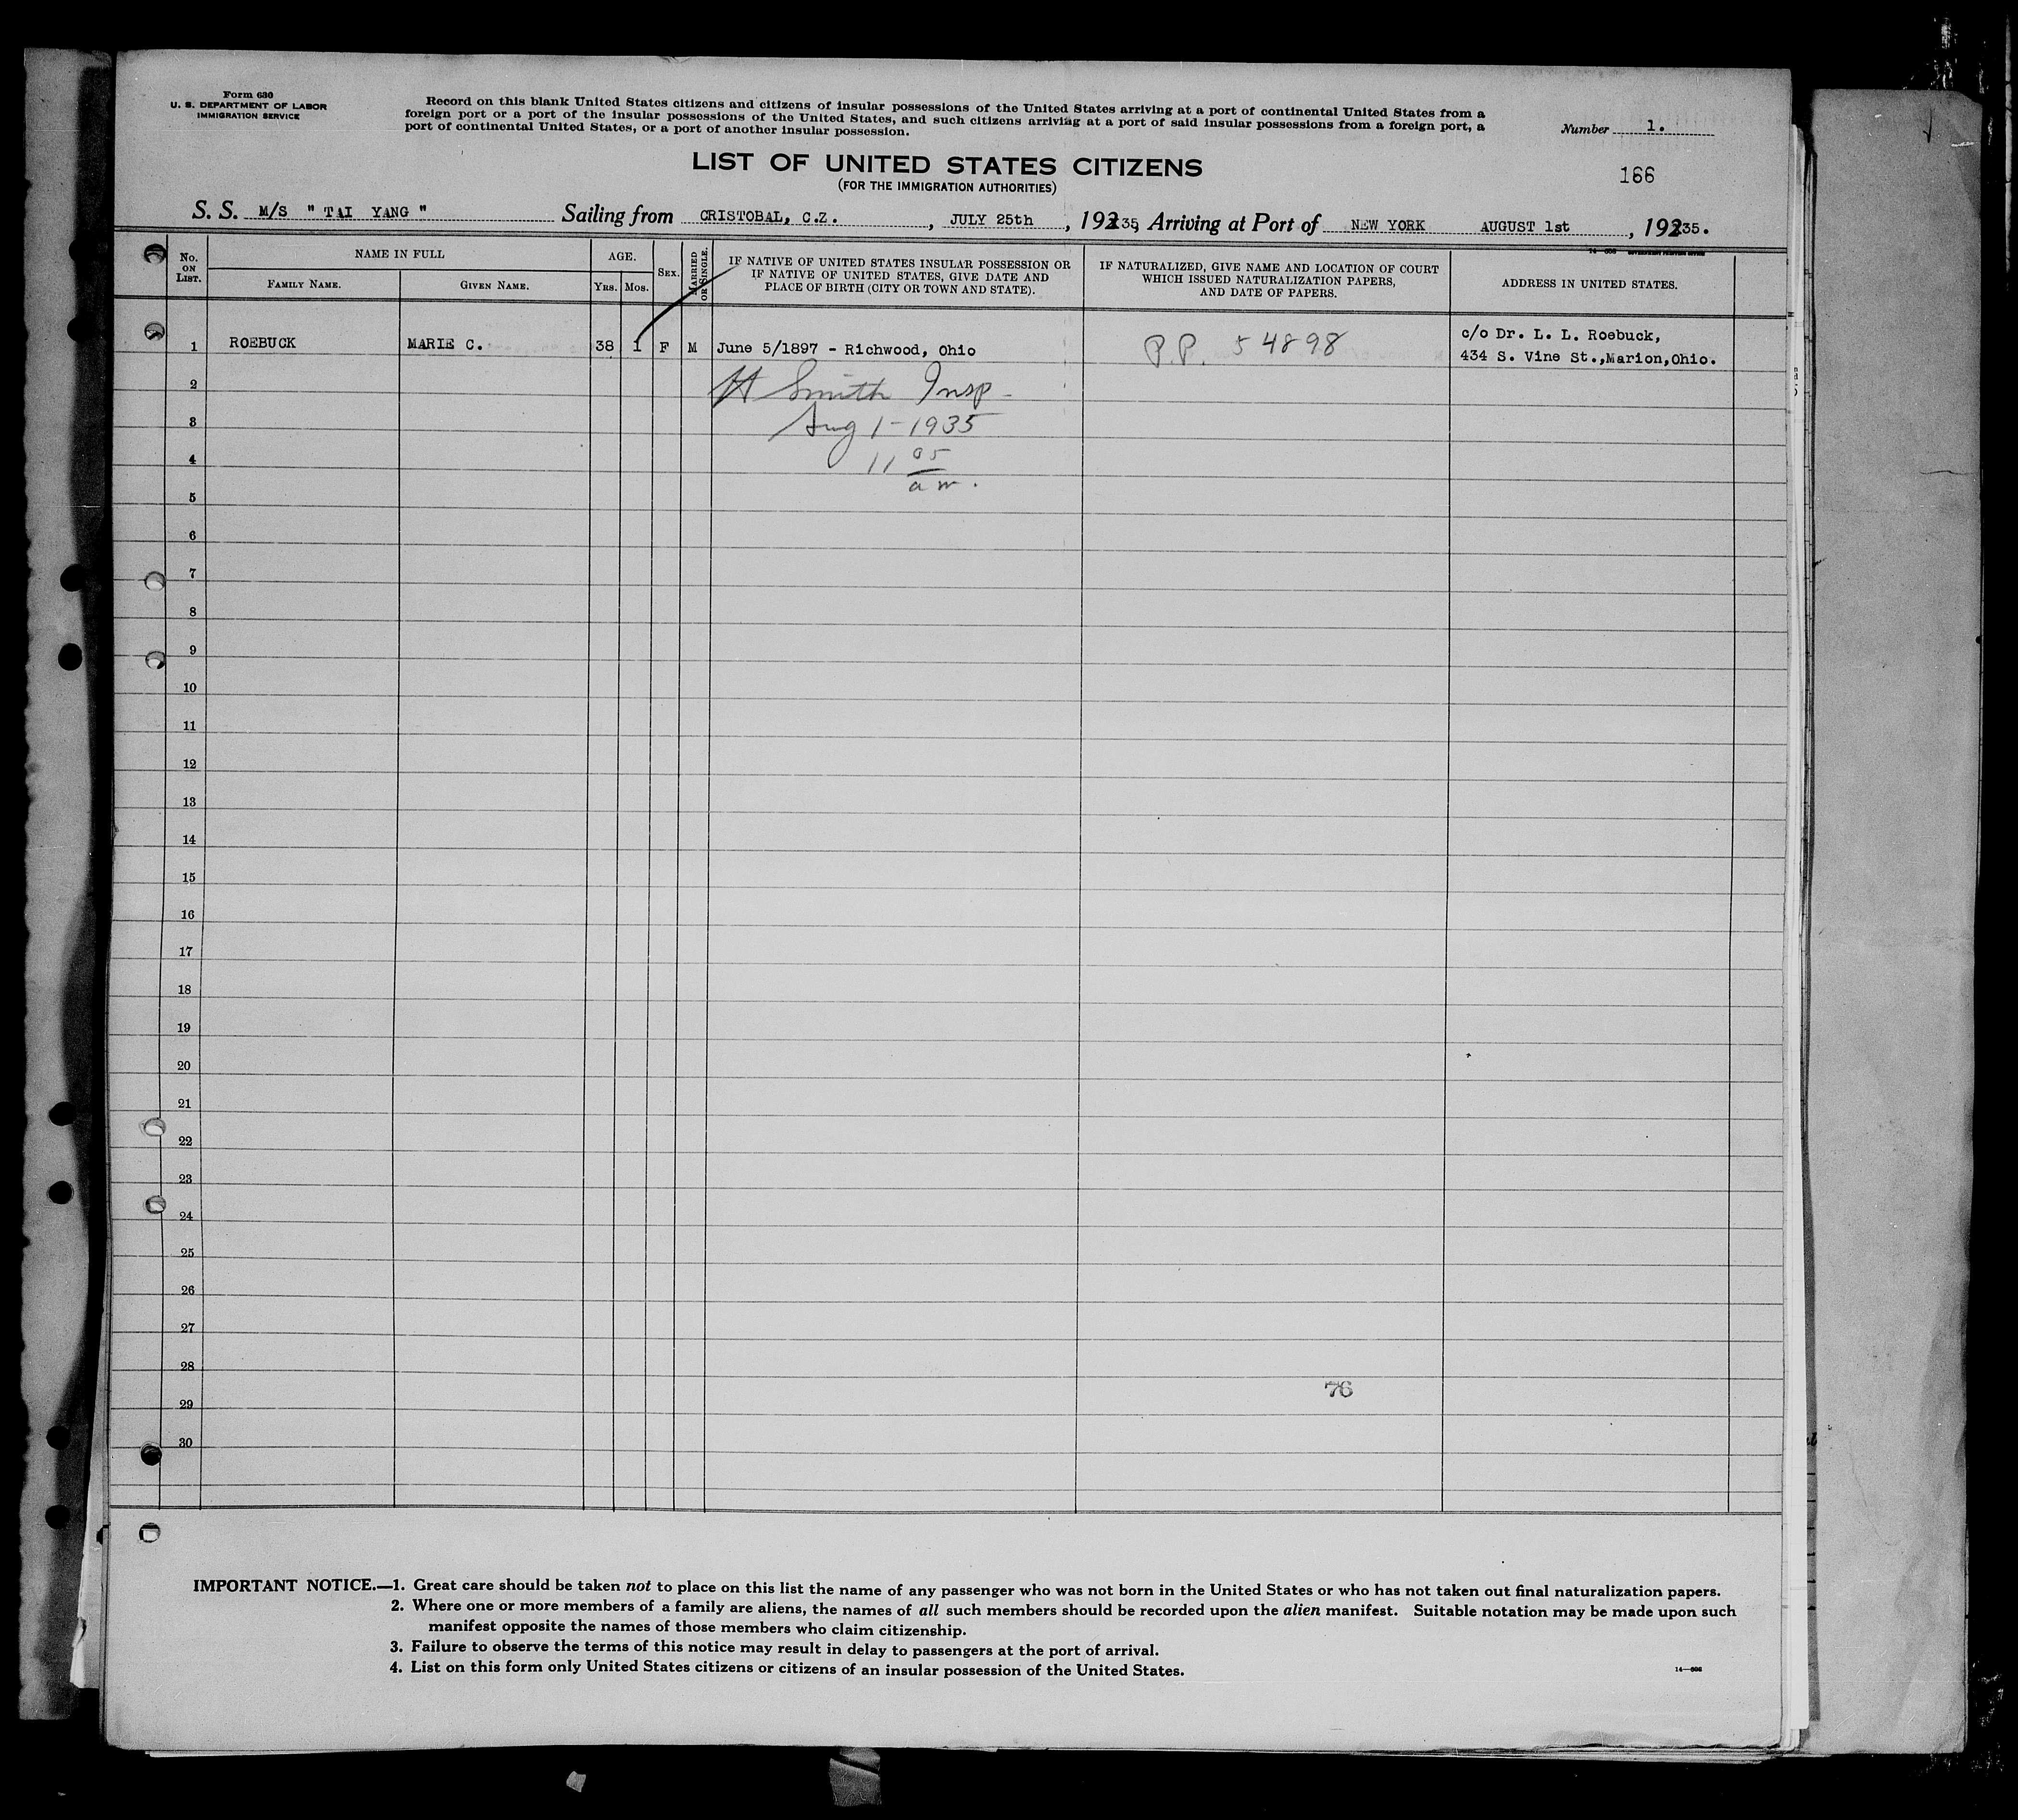 Form 630
U. S. DEPARTMENT OF LABOR
IMMIGRATION SERVICE
Record on this blank United States citizens and citizens of insular possessions of the United States arriving at a port of continental United States from a
foreign port or a port of the insular possessions of the United States, and such citizens arriving at a port of said insular possessions from a foreign port, a
port of continental United States, or a port of another insular possession.
Number 1.
166
LIST OF UNITED STATES CITIZENS
(FOR THE IMMIGRATION AUTHORITIES)
S. S. M/S " TAI YANG " Sailing from CRISTOBAL, C.Z. , JULY 25th , 19235, Arriving at Port of NEW YORK AUGUST 1st , 19235.
No. ON LIST.
NAME IN FULL
FAMILY NAME.
GIVEN NAME.
AGE.
YRS.
MOS.
SEX.
MARRIED OR SINGLE.
IF NATIVE OF UNITED STATES INSULAR POSSESSION OR
IF NATIVE OF UNITED STATES, GIVE DATE AND
PLACE OF BIRTH (CITY OR TOWN AND STATE).
IF NATURALIZED, GIVE NAME AND LOCATION OF COURT
WHICH ISSUED NATURALIZATION PAPERS,
AND DATE OF PAPERS.
ADDRESS IN UNITED STATES.
1 ROEBUCK MARIE C. 38 1 F M June 5/1897 - Richwood, Ohio P.P. 54898 c/o Dr. L. L. Roebuck,
434 S. Vine St.,Marion,Ohio.
2 H Smith Insp
3 Aug 1-1935
4 11 05
a m.
5
6
7
8
9
10
11
12
13
14
15
16
17
18
19
20
21
22
23
24
25
26
27
28
76
29
30
IMPORTANT NOTICE.—1. Great care should be taken not to place on this list the name of any passenger who was not born in the United States or who has not taken out final naturalization papers.
2. Where one or more members of a family are aliens, the names of all such members should be recorded upon the alien manifest. Suitable notation may be made upon such
manifest opposite the names of those members who claim citizenship.
3. Failure to observe the terms of this notice may result in delay to passengers at the port of arrival.
4. List on this form only United States citizens or citizens of an insular possession of the United States.